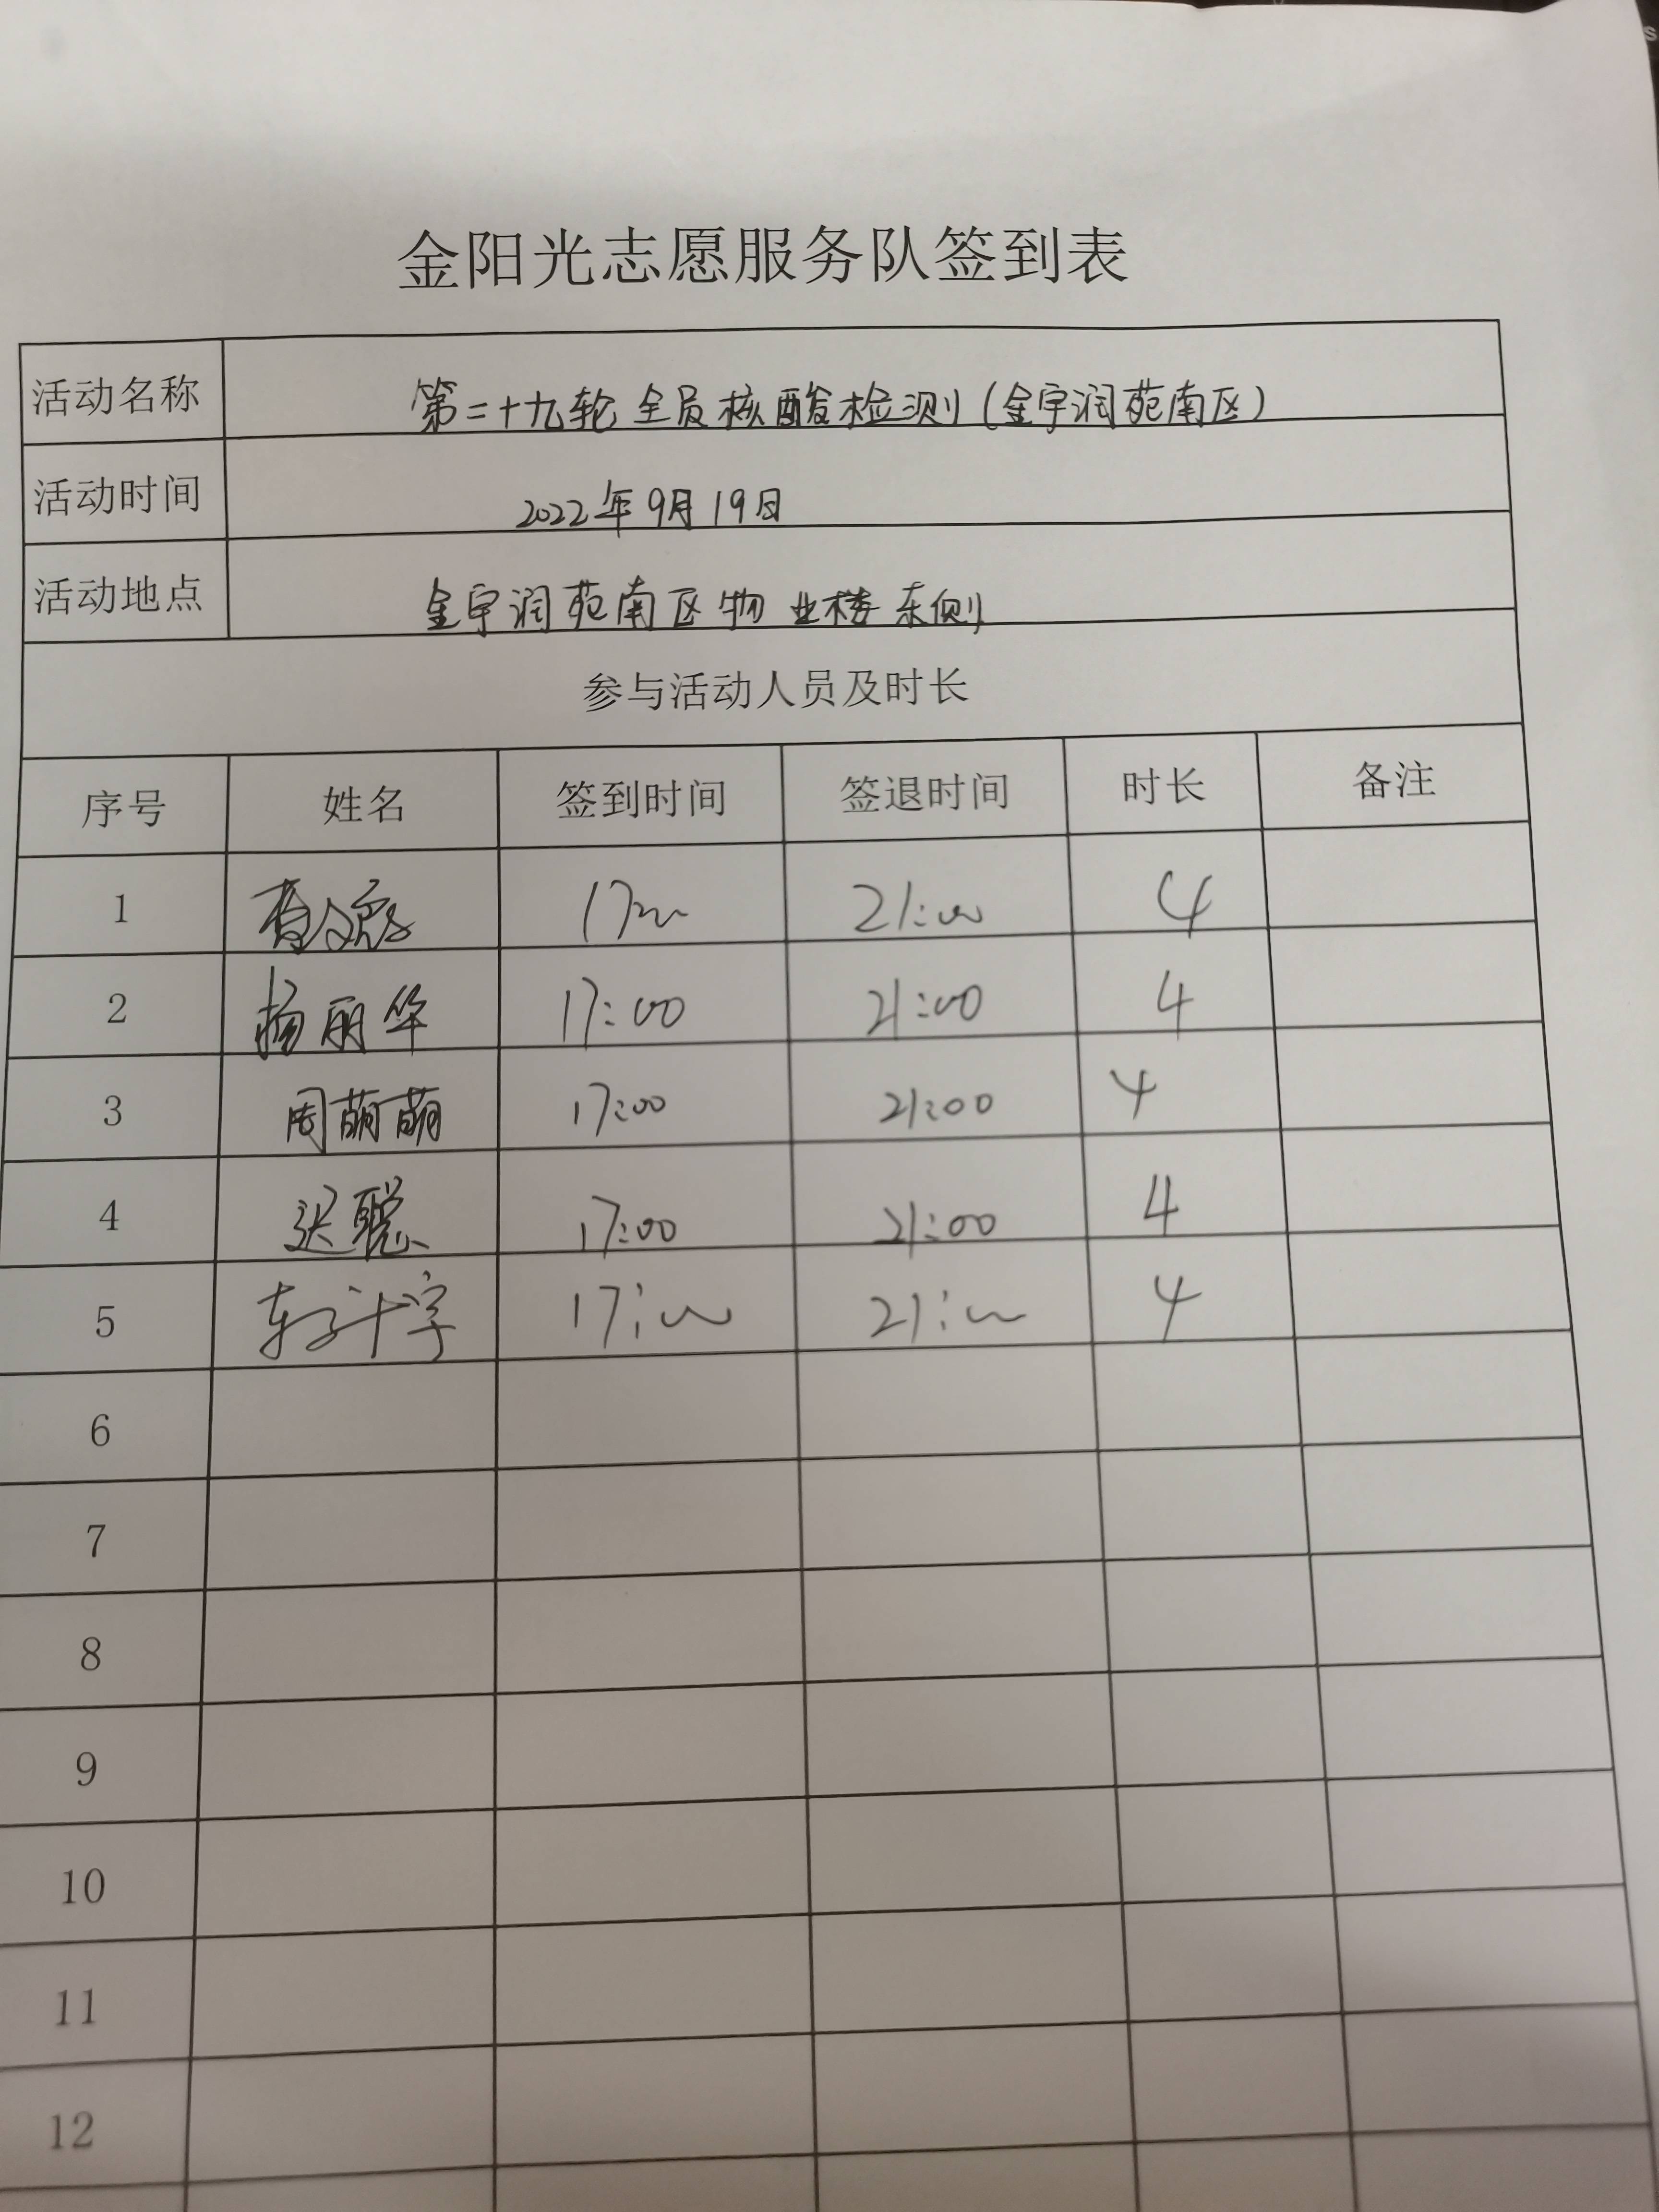 金阳光志愿服务队签到表
活动名称 第二十九轮全员核酸检测(金宇润苑南区)
活动时间 2022年9月19日
活动地点 金宇润苑南区物业楼东侧
参与活动人员及时长
序号 姓名 签到时间 签退时间 时长 备注
1 21:00 4
2 杨丽华 17:00 21:00 4
3 周萌萌 17:00 21:00 4
4 迟聪 17:00 21:00 4
5 17:00 21:00 4
6
7
8
9
10
11
12